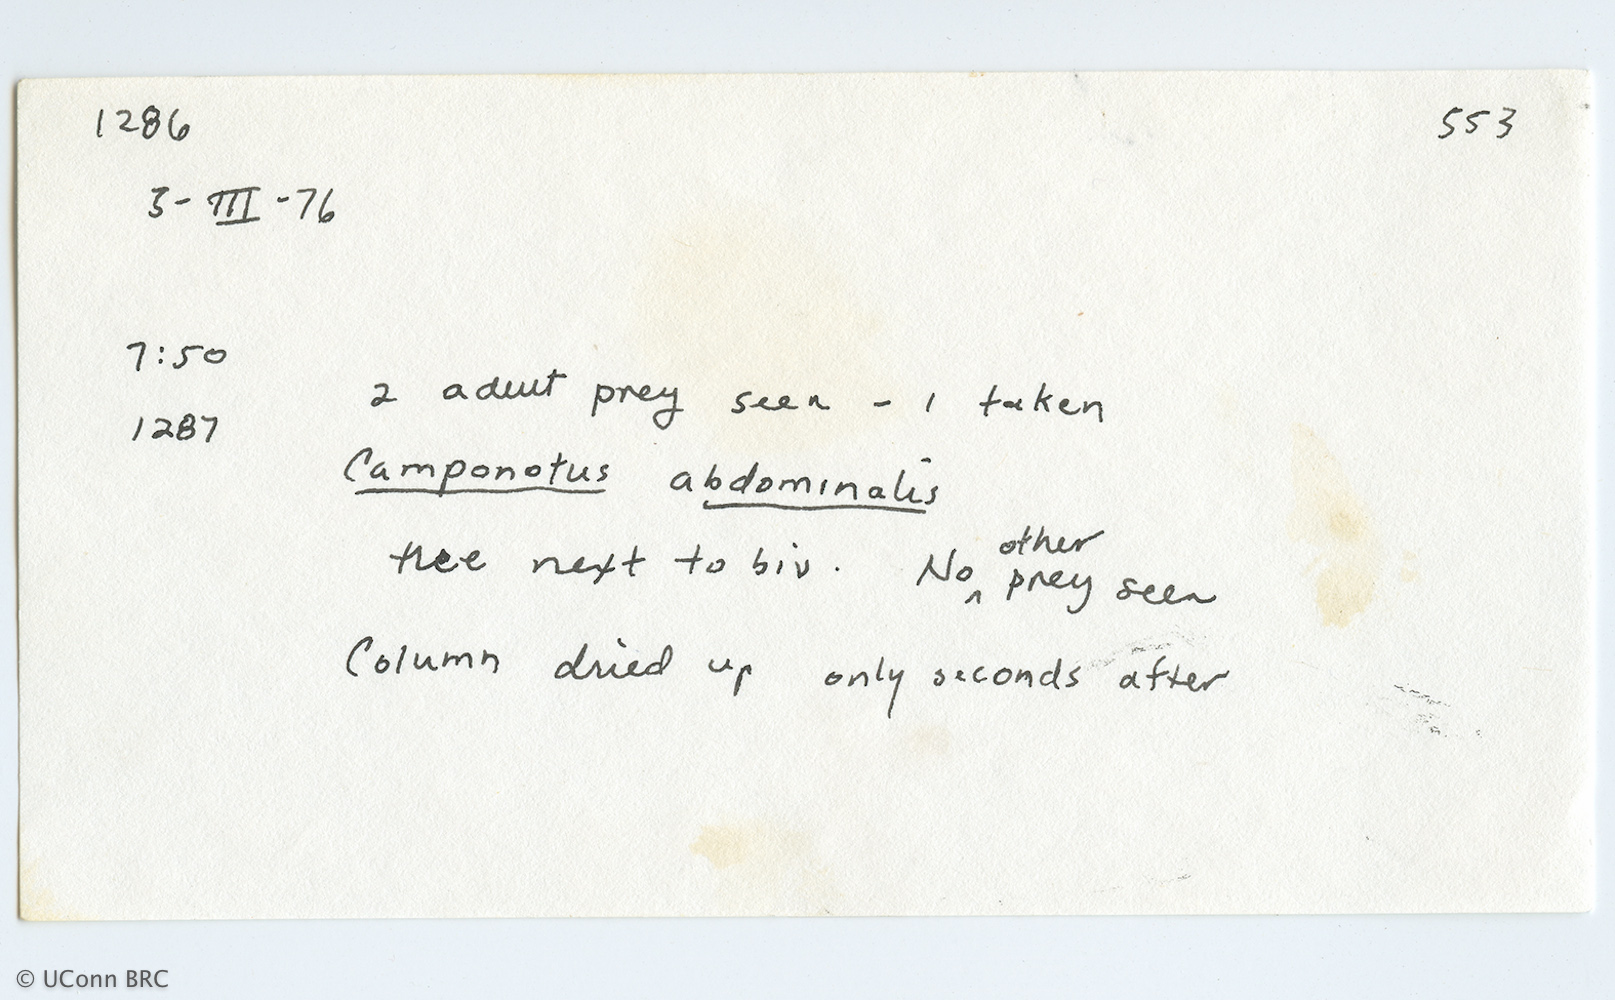 1286 553
3-III-76
7:50
2 adult prey seen - 1 taken
1287
Camponotus abdominalis
tree next to biv. No other prey seen
Column dried up only seconds after
© UConn BRC